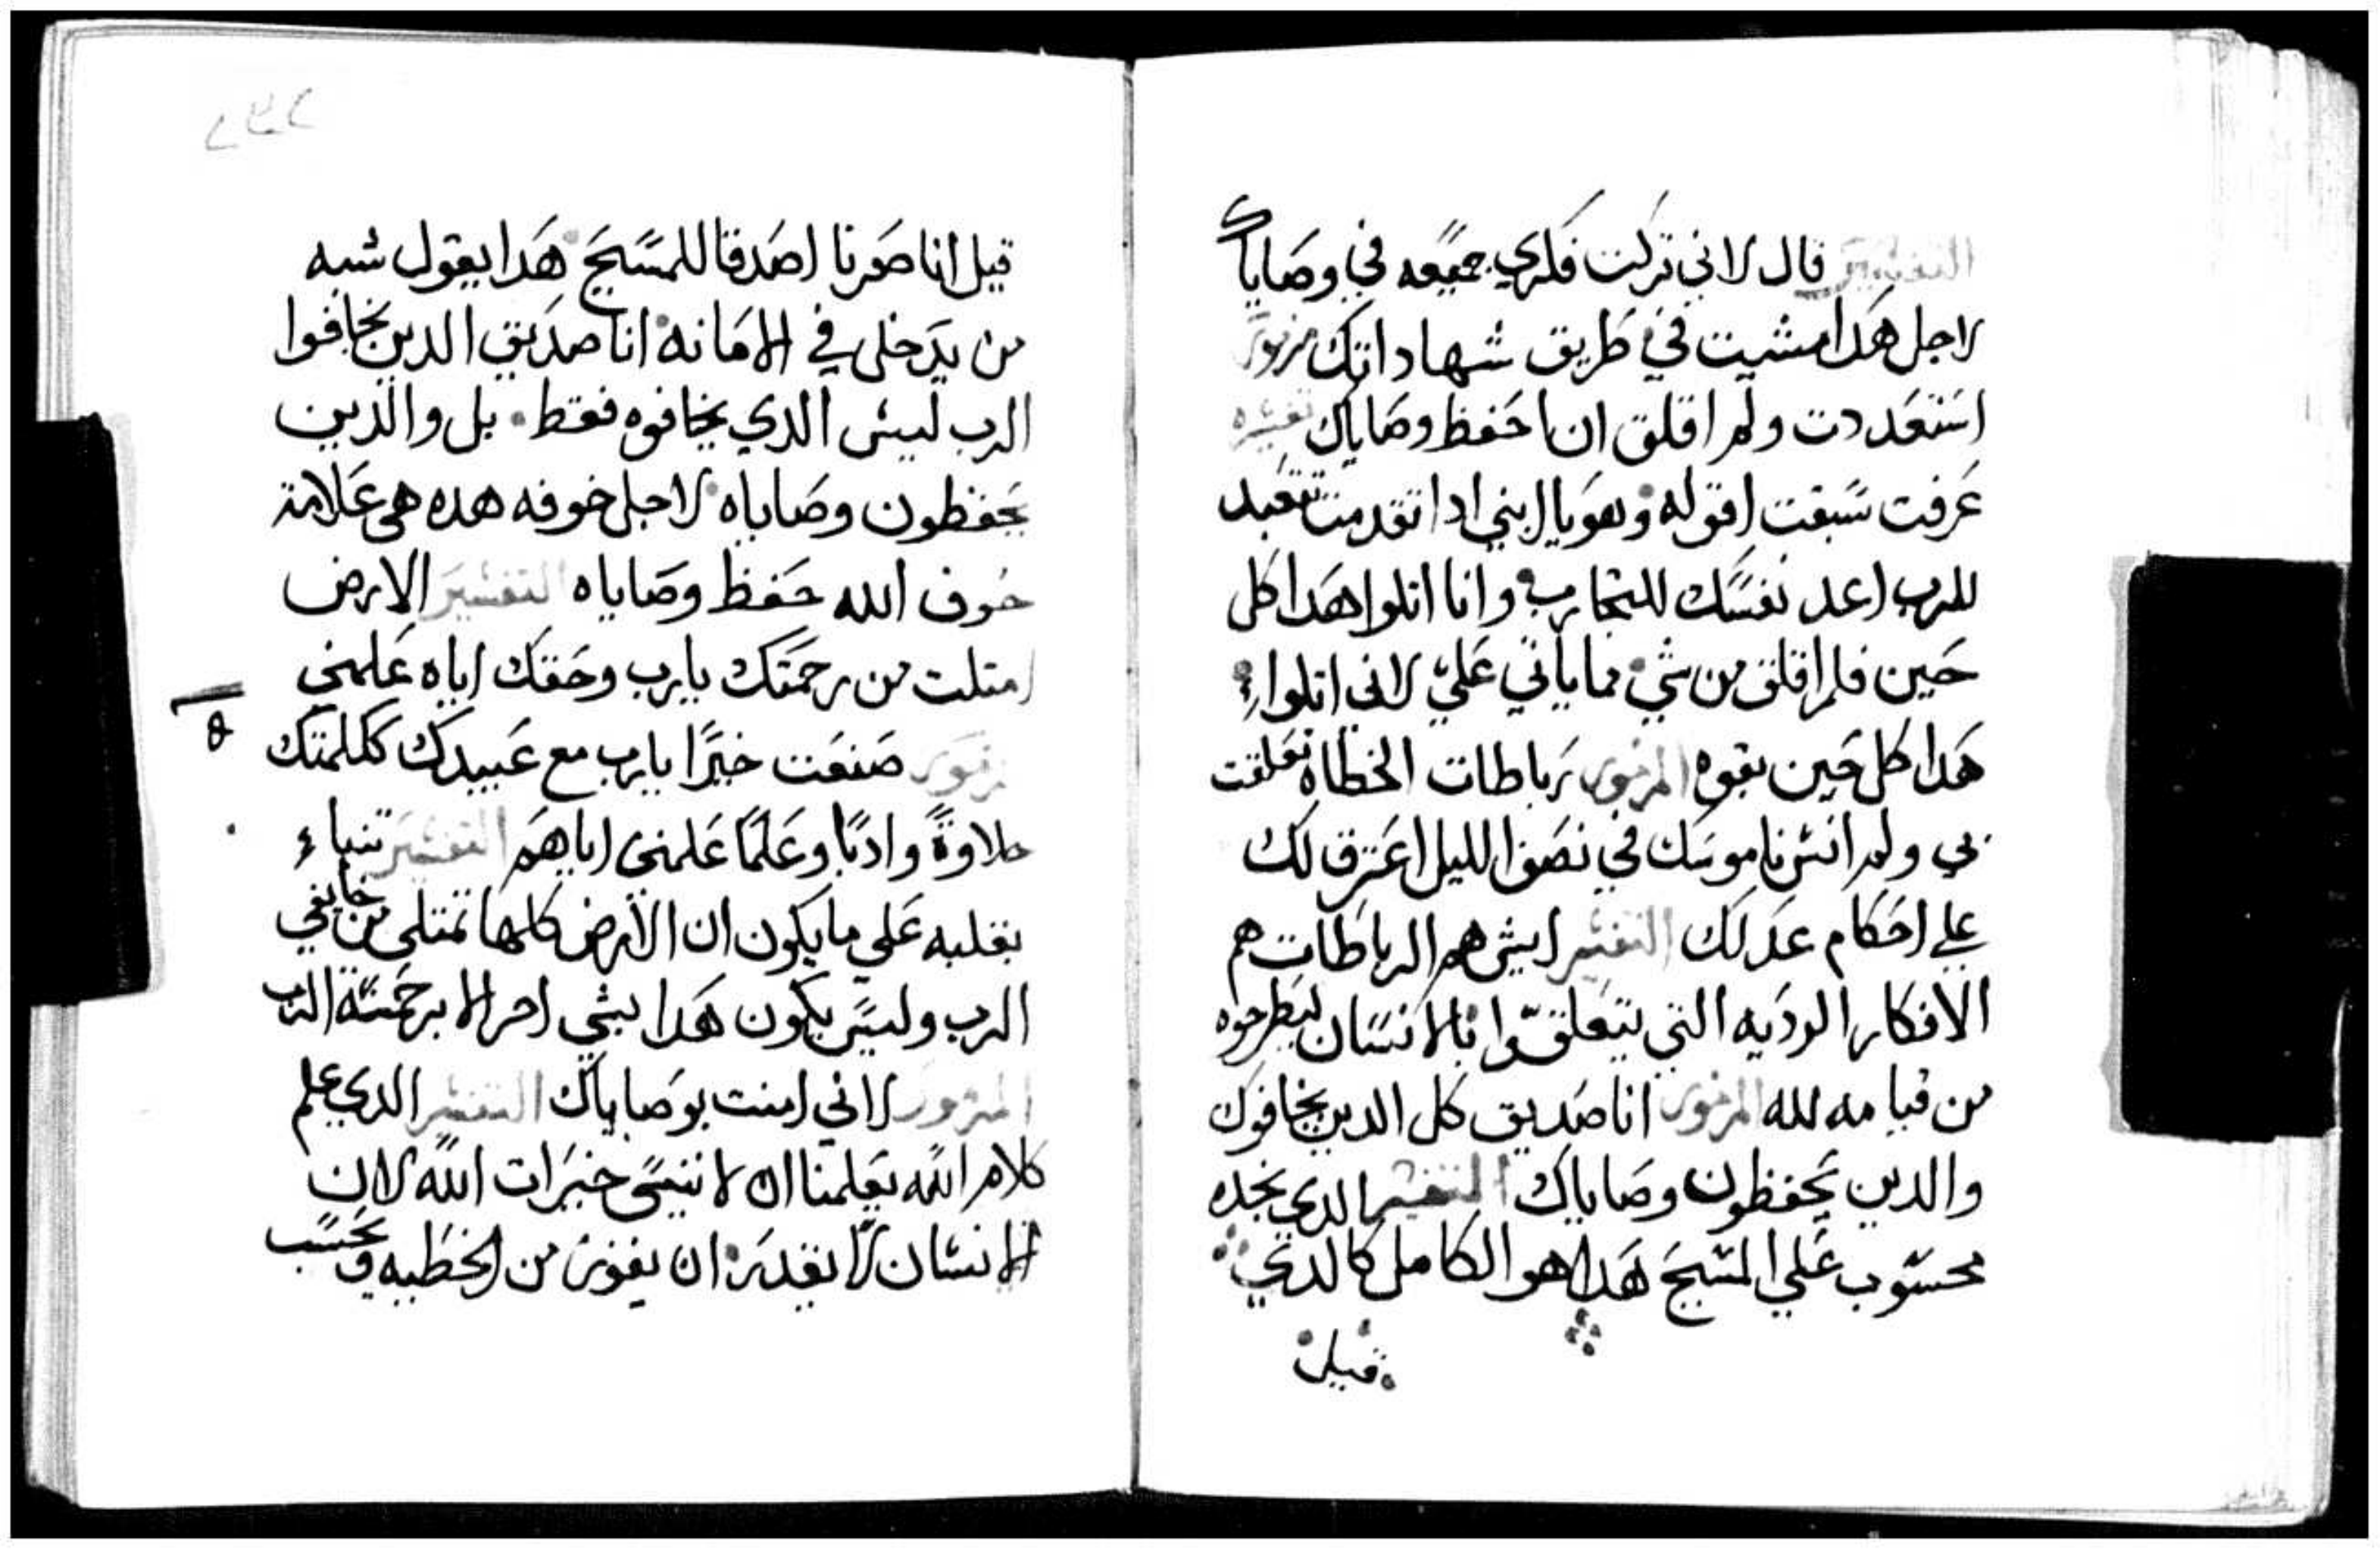 التفسير قال لاني تركت فكري جميعه في وصاياك
لاجل هدا مشيت في طريق شهاداتك مزمور
استعددت ولم اقلق ان احفظ وصاياك تفسيره
عرفت سبقت اقوله وهو يا ابني ادا تقدمت تتعبد
للرب اعد نفسك للتجارب وانا اتلوا هدا كل
حين فلم اقلق من شي مما ياتي علي لاني اتلوا
هدا كل حين بقوه المزمور رباطات الخطاه تعلقت
بي ولم انس ناموسك في نصف الليل اعترف لك
علي احكام عدلك التفسير ايش هم الرباطات هم
الافكار الرديه التي يتعلقوا بالانسان ليطرحوه
من قيامه لله المزمور انا صديق كل الدين يخافوك
والدين يحفظون وصاياك التفسير الدي يجده
محسوب علي المسيح هدا هو الكامل كالدي
قيل
قيل انا صرنا اصدقا للمسيح هدا يقول شبه
من يدخل في الامانه انا صديق الدين يخافوا
الرب ليس الدي يخافوه فقط بل والذين
يحفظون وصاياه لاجل خوفه هده هي علامة
خوف الله حفظ وصاياه التفسير الارض
امتلت من رحمتك يارب وحقك اياه علمني
مزمور صنعت خيرًا يارب مع عبيدك ككلمتك
حلاوةً وادبًا وعلمًا علمني اياهم التفسير تنباء
بقلبه علي ما يكون ان الارض كلها تمتلي من خايفي
الرب وليس يكون هدا بشي اخر الا برحمة الرب
المزمور لاني امنت بوصاياك التفسير الدي علم
كلام الله يعلمنا ان لا ننسي خيرات الله لان
الانسان لا يقدر ان يفوز من الخطيه ويحسب